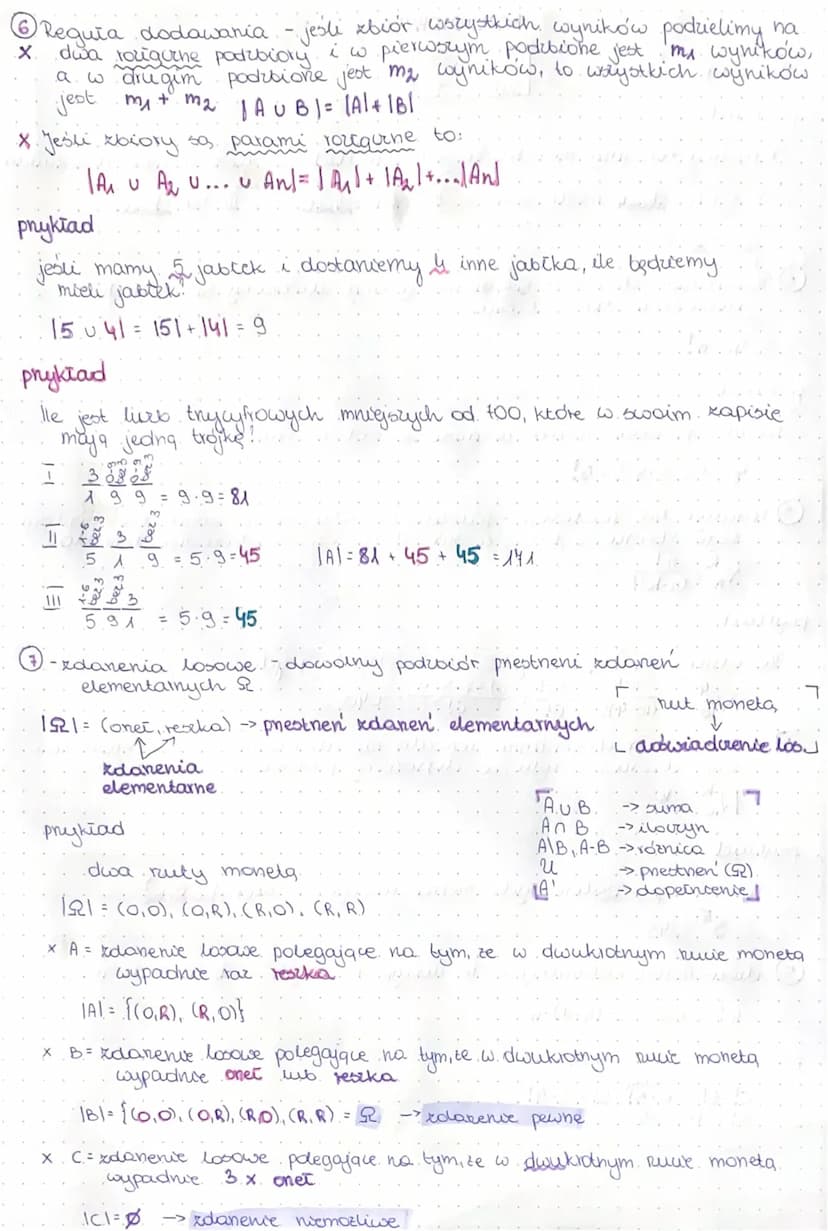 ⑥ Reguła dodawania - jeśli zbiór wszystkich wyników podzielimy na
x dwa rozłączne podzbiory i w pierwszym podzbiorze jest m₁ wyników,
a w drugim podzbiorze jest m₂ wyników, to wszystkich wyników
jest m₁ + m₂ |A ∪ B| = |A| + |B|
x Jeśli zbiory są parami rozłączne to:
|A₁ ∪ A₂ ∪ ... ∪ An| = |A₁| + |A₂| + ... |An|
przykład
jeśli mamy 5 jabłek i dostaniemy 4 inne jabłka, ile będziemy
mieli jabłek?
|5 ∪ 4| = |5| + |4| = 9
przykład
Ile jest liczb trzycyfrowych mniejszych od 700, które w swoim zapisie
mają jedną trójkę?
I 3 0-9 bez 3 0-9 bez 3
1 9 9 = 9·9 = 81
II 1-6 bez 3 3 bez 3
5 1 9 = 5·9 = 45 |A| = 81 + 45 + 45 = 141
III 1-6 bez 3 bez 3 3
5 9 1 = 5·9 = 45
⑦ - zdarzenia losowe - dowolny podzbiór przestrzeni zdarzeń
elementarnych Ω
rzut monetą
|Ω| = (orzeł, reszka) -> przestrzeń zdarzeń elementarnych
↓
doświadczenie los.
zdarzenia
elementarne
A ∪ B -> suma
A ∩ B -> iloczyn
A\B, A-B -> różnica
U -> przestrzeń (Ω)
A' -> dopełnienie
przykład
dwa rzuty monetą
|Ω| = (O,O), (O,R), (R,O), (R,R)
x A = zdarzenie losowe polegające na tym, że w dwukrotnym rzucie monetą
wypadnie raz reszka
|A| = {(O,R), (R,O)}
x B = zdarzenie losowe polegające na tym, że w dwukrotnym rzucie monetą
wypadnie orzeł lub reszka
|B| = {(O,O), (O,R), (R,O), (R,R) = Ω -> zdarzenie pewne
x C = zdarzenie losowe polegające na tym, że w dwukrotnym rzucie monetą
wypadnie 3 x orzeł
|C| = Ø -> zdarzenie niemożliwe